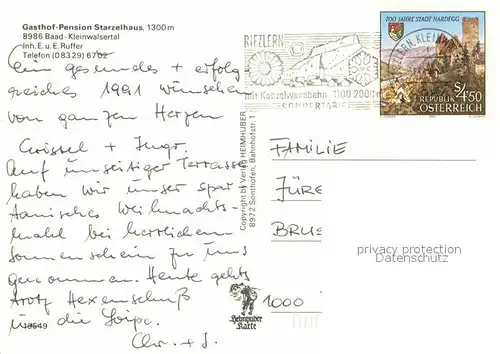 Gasthof-Pension Starzelhaus, 1300 m
8986 Baad-Kleinwalsertal
Inh. E. u. E. Ruffer
Telefon (08329) 6702
Ein gesundes + erfolg
greiches 1991 wünschen
von ganzen Herzen
Crössel + Jngr.
Auf unseitiger Terrasse
haben wir unser spar
tanisches Weihnachts-
mahl bei herrlichem
Sonnenschein zu uns
genommen. Heute gehts
trotz Hexenschuß
in die Loipe.
Chr. + J.
18649
Copyright by Verlag HEIMHUBER
8972 Sonthofen, Bahnhofstr. 1
Heimhuber
Karte
RIEZLERN
mit Kanzelwandbahn 1100-2000 m
700 JAHRE STADT HARDEGG
S 4.50
REPUBLIK
ÖSTERREICH
FAMILIE
JÜRE
BRUE
1000
privacy protection
AKPOOL.DE